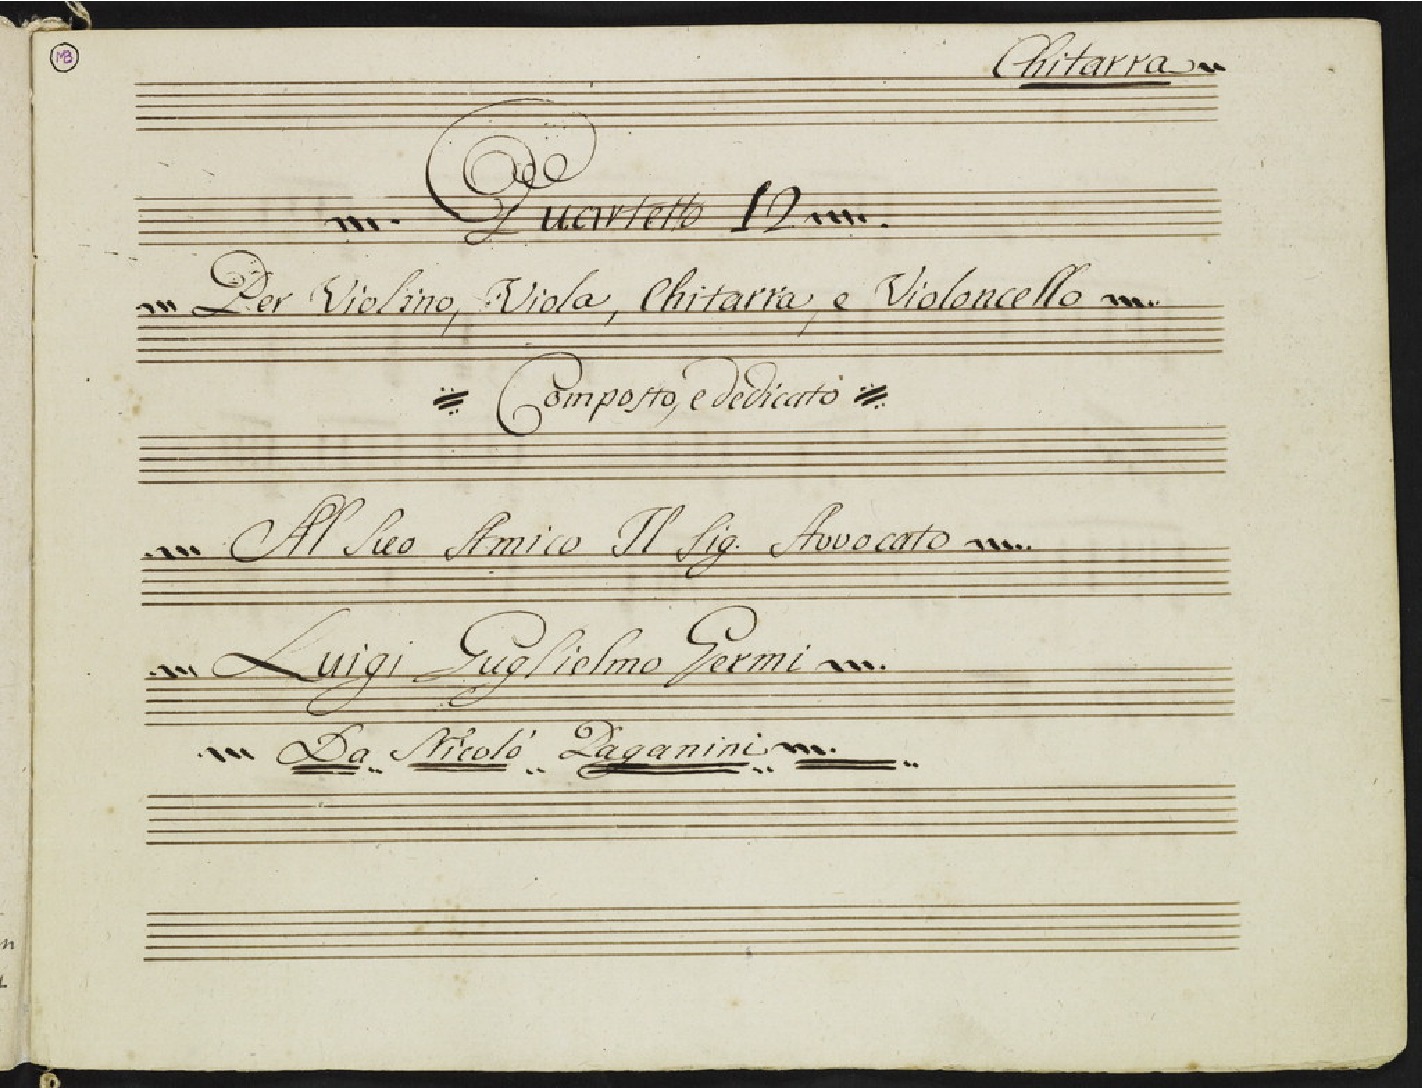 MB
Chitarra
Quartetto 12
Per Violino, Viola, Chitarra, e Violoncello
Composto, e dedicato
Al Suo Amico Il Sig. Avvocato
Luigi Guglielmo Germi
Da Nicolò Paganini